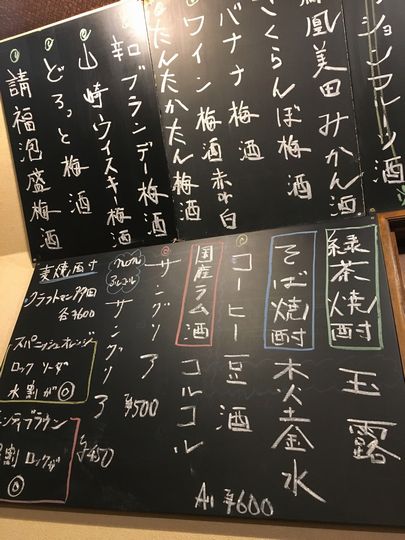 ション酒
鳳凰美田みかん酒
さくらんぼ梅酒
バナナ梅酒
ワイン梅酒赤or白
たんたかたん梅酒
辛口ブランデー梅酒
山崎ウイスキー梅酒
どろっと梅酒
請福泡盛梅酒
緑茶焼酎 玉露
そば焼酎
国産ラム酒 コルコル
コーヒー豆酒
サングリア
non
アルコール
サングリア ¥500
麦焼酎
クラフトマン多田
各¥600
スパニッシュオレンジ
ロック ソーダ
水割が◎
ブラウン
割 ロックが
◎
¥450
All ¥600